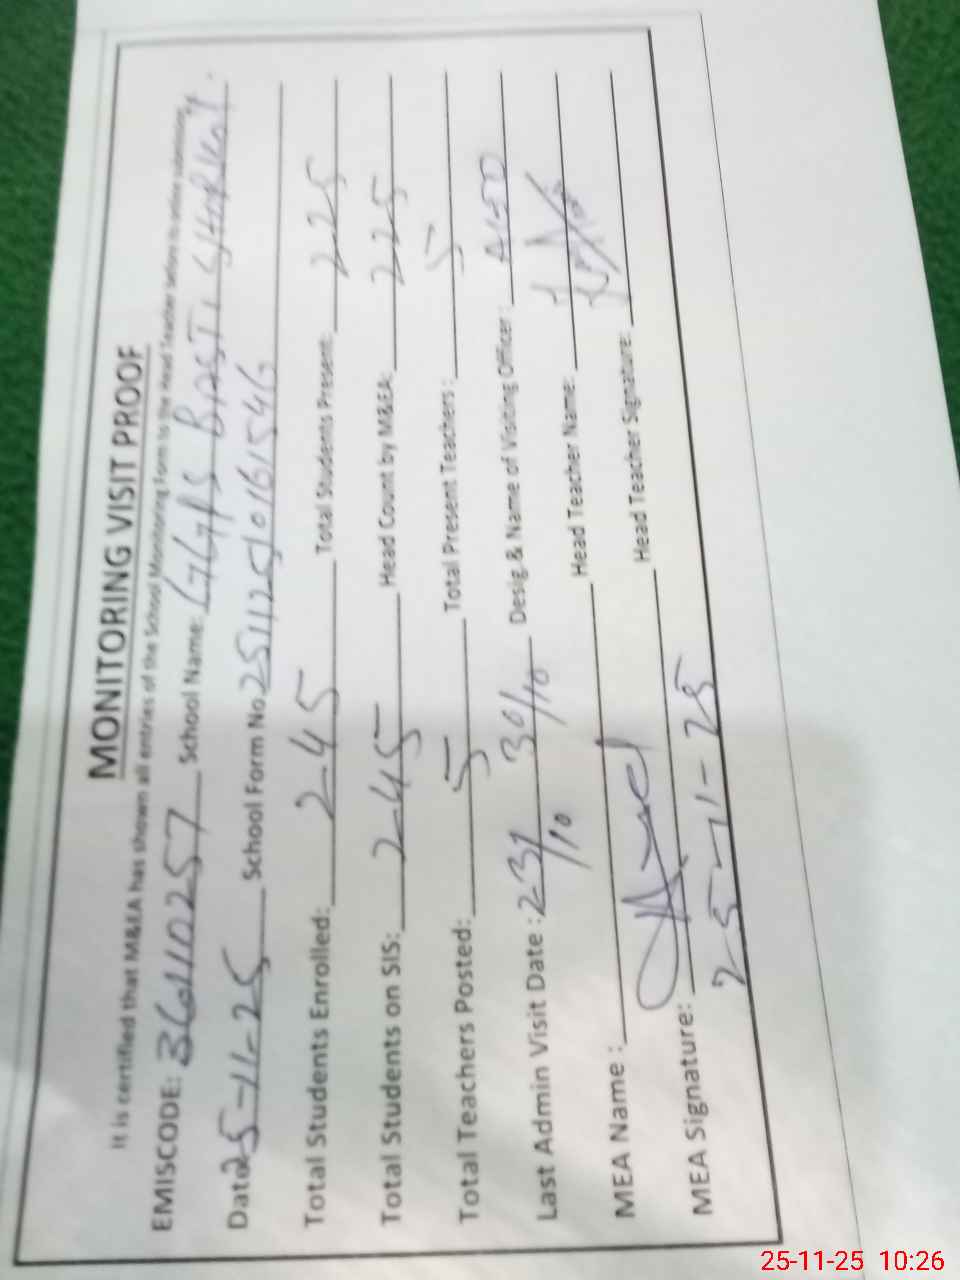 MONITORING VISIT PROOF
It is certified that M&EA has shown all entries of the School Monitoring Form to the Head Teacher before its online submission
EMISCODE: 36110257 School Name: GGPS BASTI SHORKOT
Date 25-11-25 School Form No. 25112510161546
Total Students Enrolled: 245 Total Students Present: 225
Total Students on SIS: 245 Head Count by M&EA: 225
Total Teachers Posted: 5 Total Present Teachers: 5
Last Admin Visit Date: 23/10 30/10 Desig & Name of Visiting Officer: AEO
MEA Name: Head Teacher Name:
MEA Signature: Head Teacher Signature:
25-11-25
25-11-25 10:26